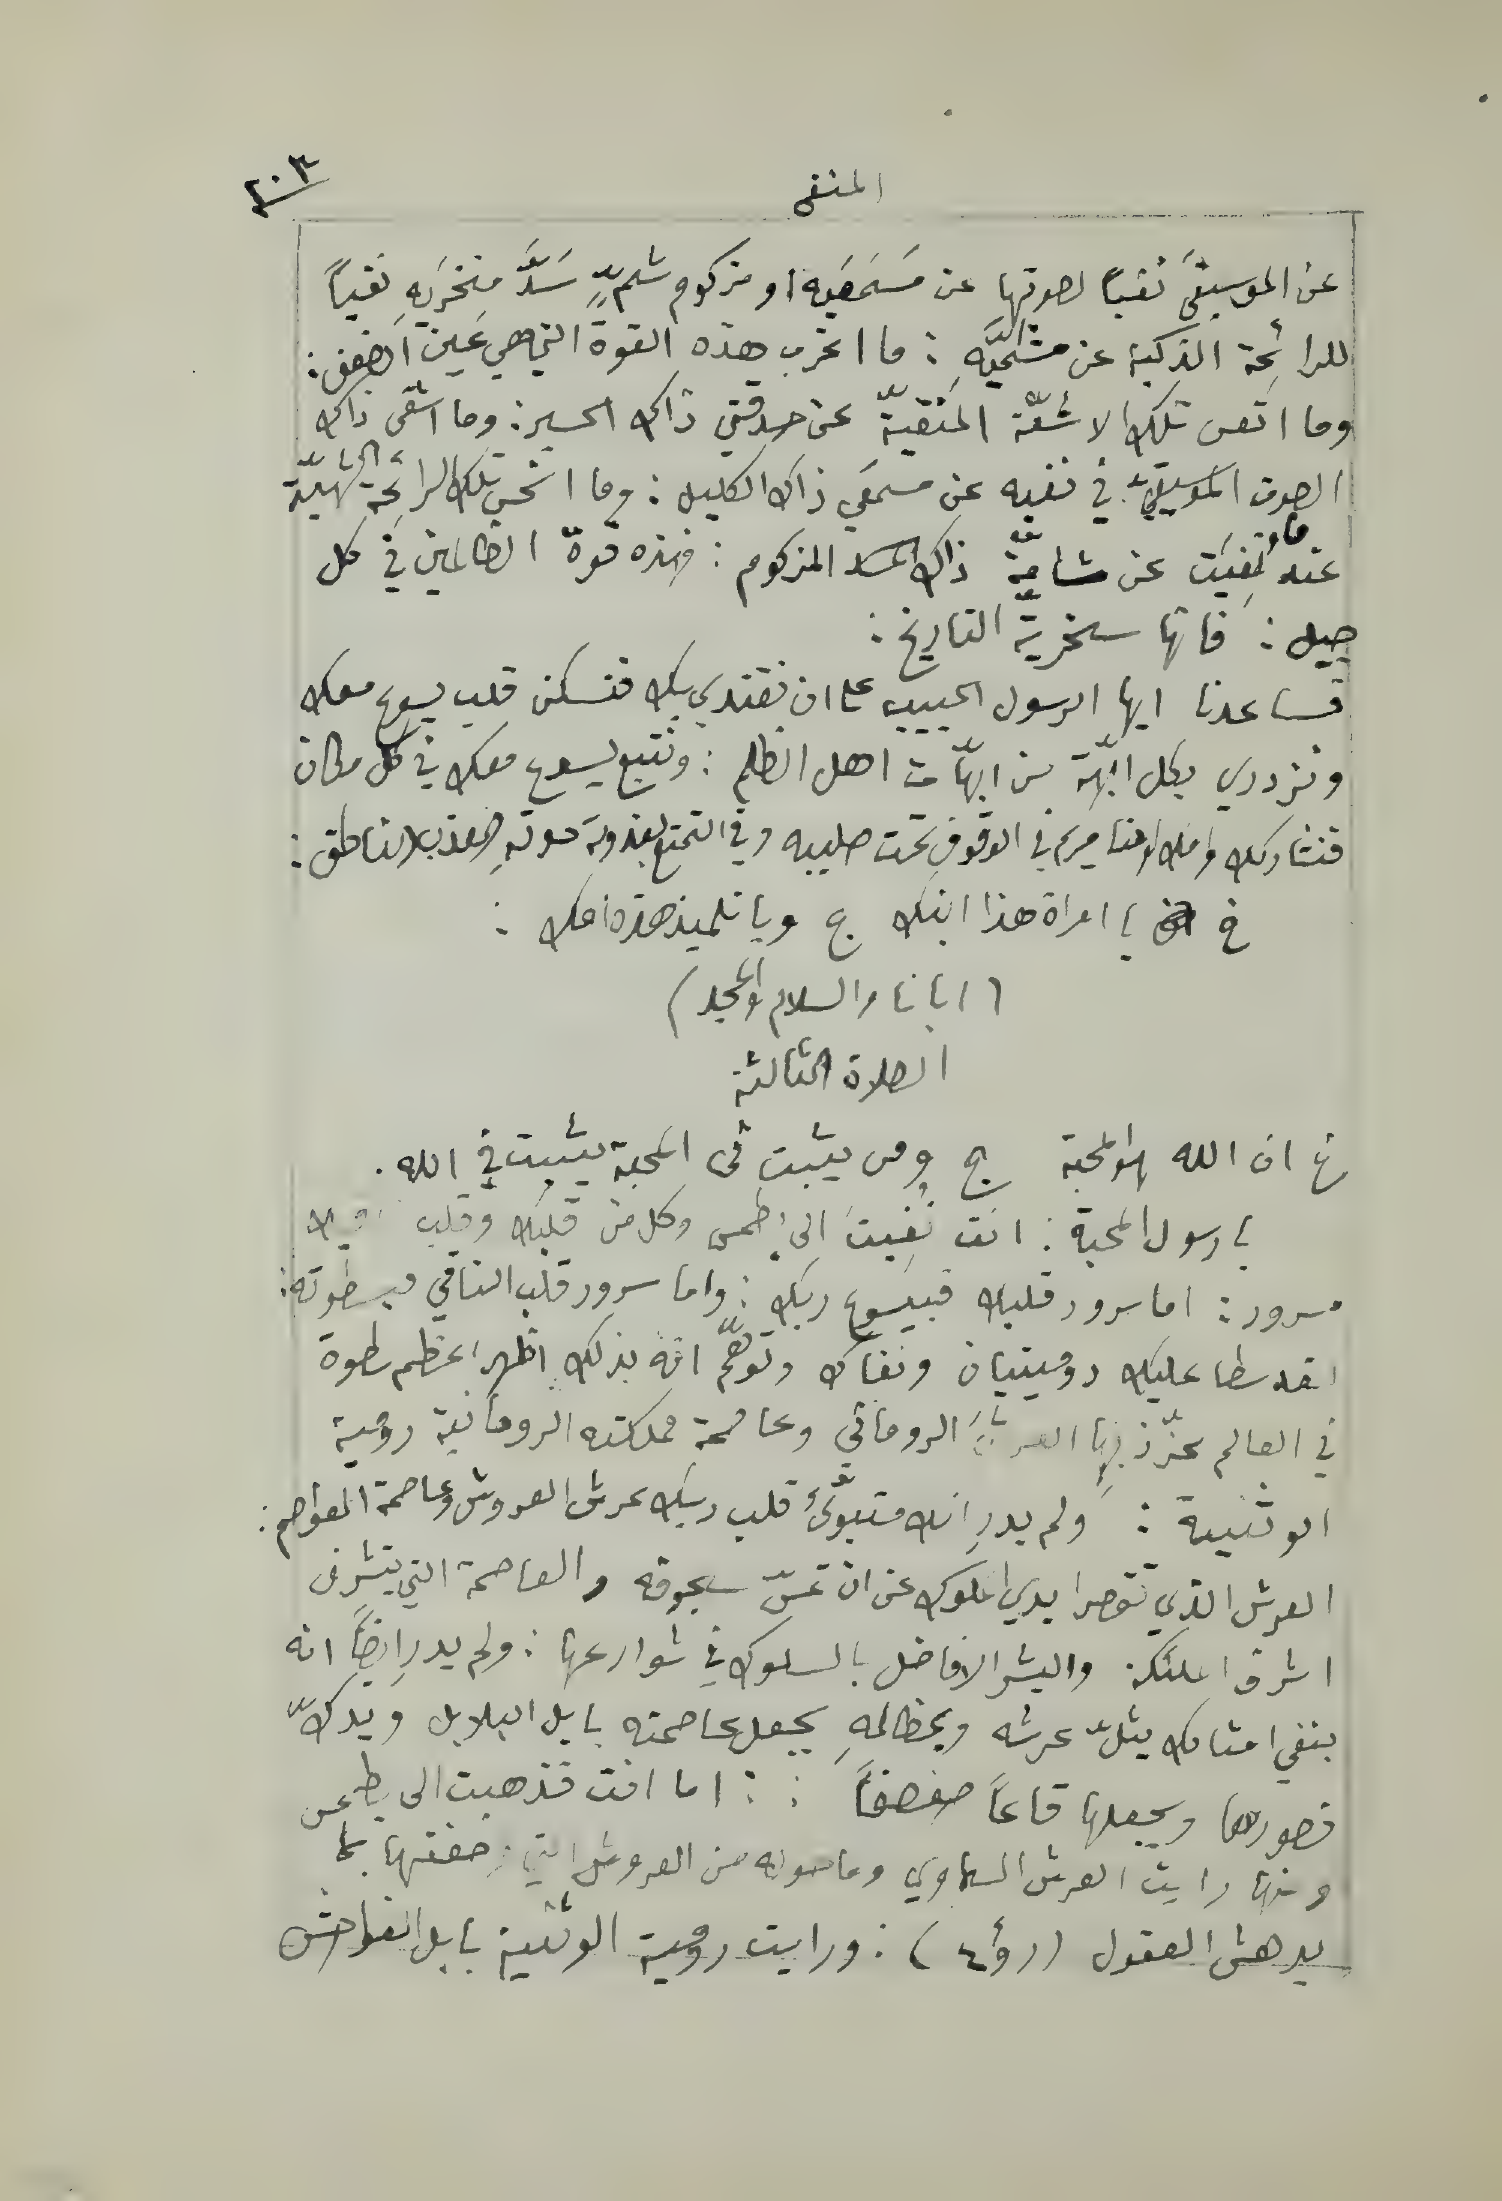 المنفى
٢٠٣
عن الموسيقى نفياً لصوتها عن مسمعيه او مزكوم شمٍّ سَدَّ منخريه نفياً
للرائحة الذكية عن : ما اغرب هذه القوة التي هي عين الضعف :
وما اتعس تلك الاشعّة المنفيّة عن حدقتي ذاك الحسير : وما اشقى ذاك
الصوت الموسيقيّ في نفيه عن مسمعي ذاك الكليل : وما تلك الرائحة الشهيّة
عند ما نُفِيَت عن شامّة ذاك المزكوم : فهذه قوة الظالمين في كل
جيل : فانها سخريّة التاريخ :
فساعدنا ايها الرسول الحبيب على ان نقتدي بك فنسكن قلب يسوع معك
ونزدري بكل ابّهة من ابهّات اهل الظلم : ونتبع يسوع معك في كل مكان
فنشاركك وامك امنا مريم في الوقوف تحت صليبه وفي التمتع بعذوبة صوته العذب الناطق :
خ يا امراة هذا ابنك ج ويا تلميذ هذه امك :
( ابانا والسلام والمجد )
الصلاة الثالثة
خ ان الله هو المحبة ج ومن يثبت في المحبة يثبت في الله .
يا رسول المحبة : انت نُفِيتَ الى بطمس وكل من قلبك وقلب
مسرور : اما سرور قلبك فبيسوع ربك : واما سرور قلب النافي فبسطوته :
لقد سطا عليك دوميتيان ونفاك وتوهّم انه بذلك اظهر اعظم سطوة
في العالم عزّز بها الروماني وعاصمة مملكته الرومانية رومية
الوثنية : ولم يدرِ انك متبوّئ قلب ربك عرش العروش وعاصمة العواصم :
العرش الذي تقصر ايدي الملوك عن ان تمسّ سجوفه والعاصمة التي يتشرف
اشرف الملئكة والبشر الافاضل بالسلوك في شوارعها : ولم يدرِ ايضاً انه
بنفي امثالك يثلّ عرشه وبمظالمهِ يجعل عاصمته بابل البلابل ويدكّ
قصورها ويجعلها قاعاً صفصفاً : : اما انت فذهبت الى بطمس
ومنها رايت العرش السماوي وما حوله من العروش التي وصفتها بما
يدهش العقول (رؤ ٤) : ورايت رومية الوثنية بابل الفواحش